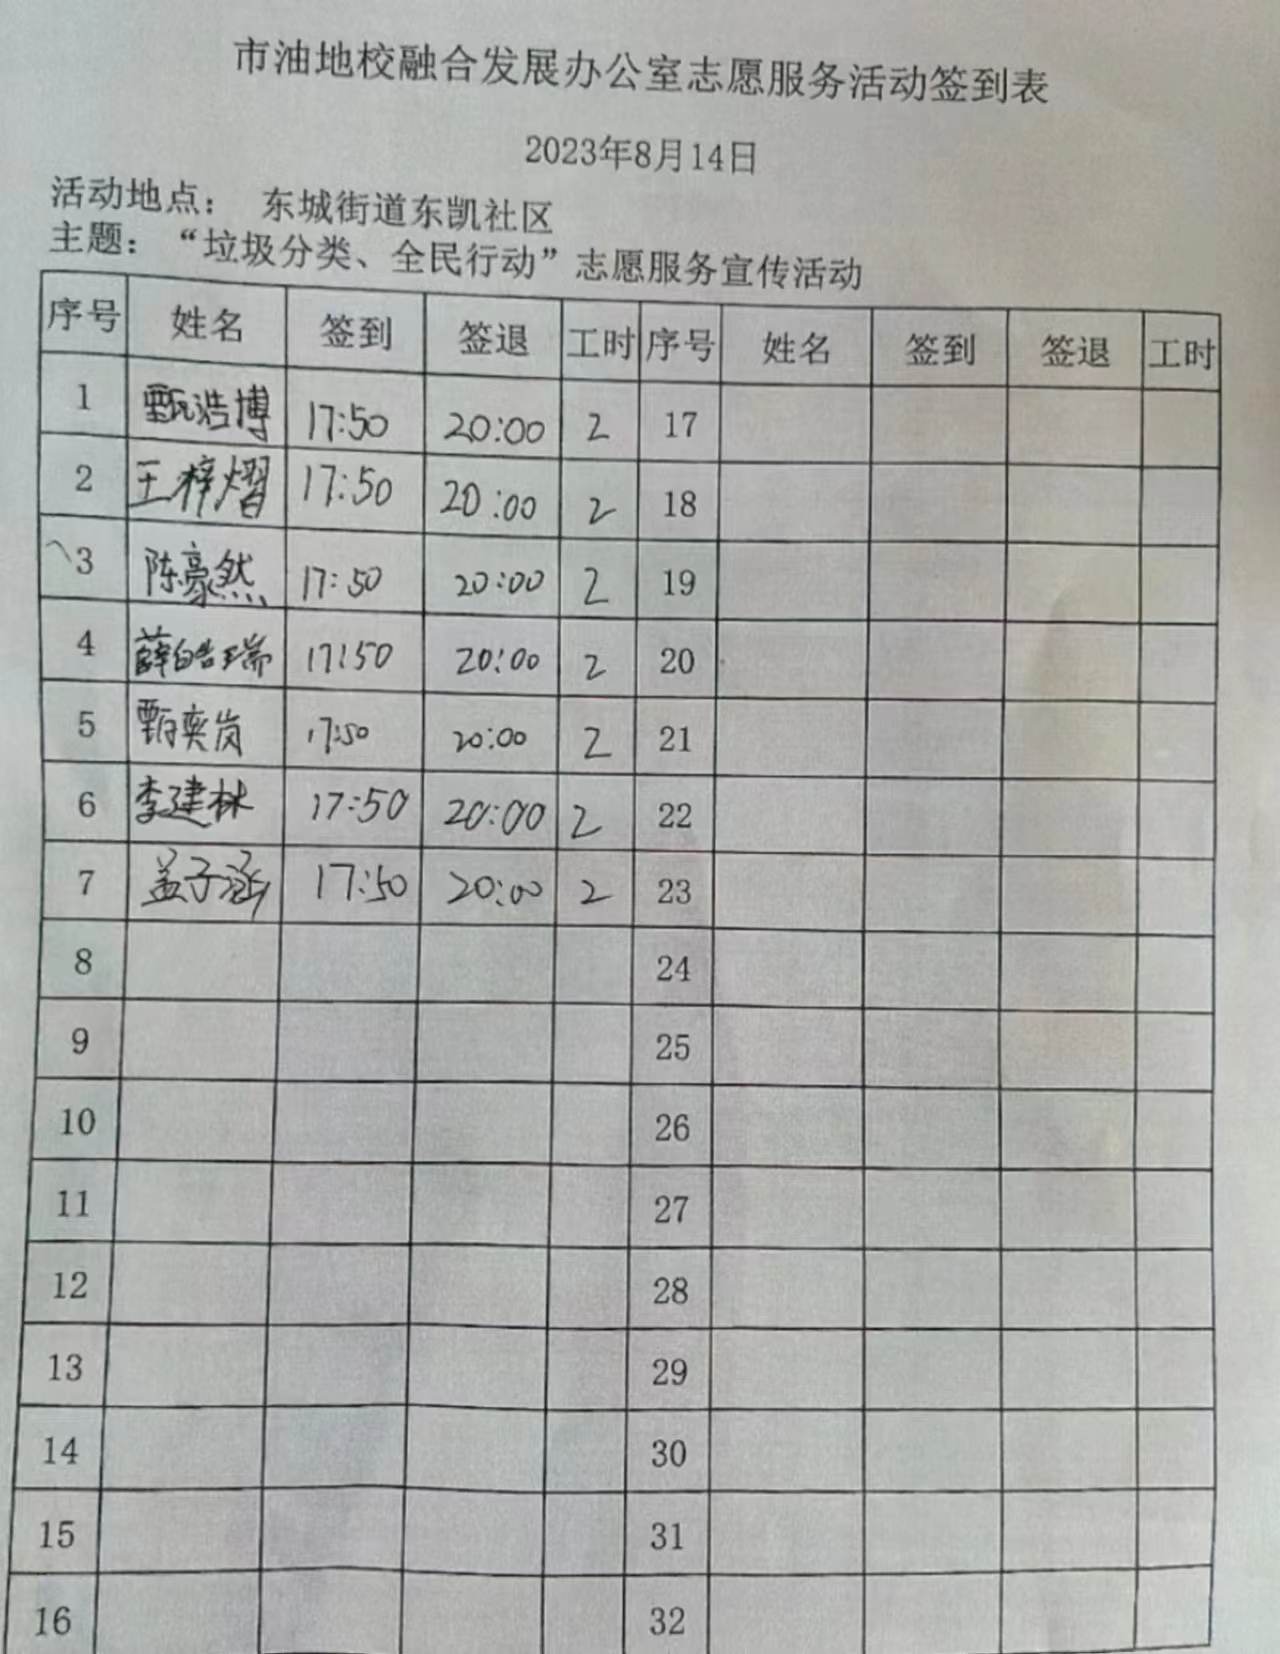 市油地校融合发展办公室志愿服务活动签到表
2023年8月14日
活动地点： 东城街道东凯社区
主题：“垃圾分类、全民行动”志愿服务宣传活动
序号 姓名 签到 签退 工时 序号 姓名 签到 签退 工时
1 甄浩博 17:50 20:00 2 17
2 王梓熠 17:50 20:00 2 18
3 陈豪然 17:50 20:00 2 19
4 薛皓瑞 17:50 20:00 2 20
5 甄奕岚 17:50 20:00 2 21
6 李建林 17:50 20:00 2 22
7 孟子涵 17:50 20:00 2 23
8 24
9 25
10 26
11 27
12 28
13 29
14 30
15 31
16 32